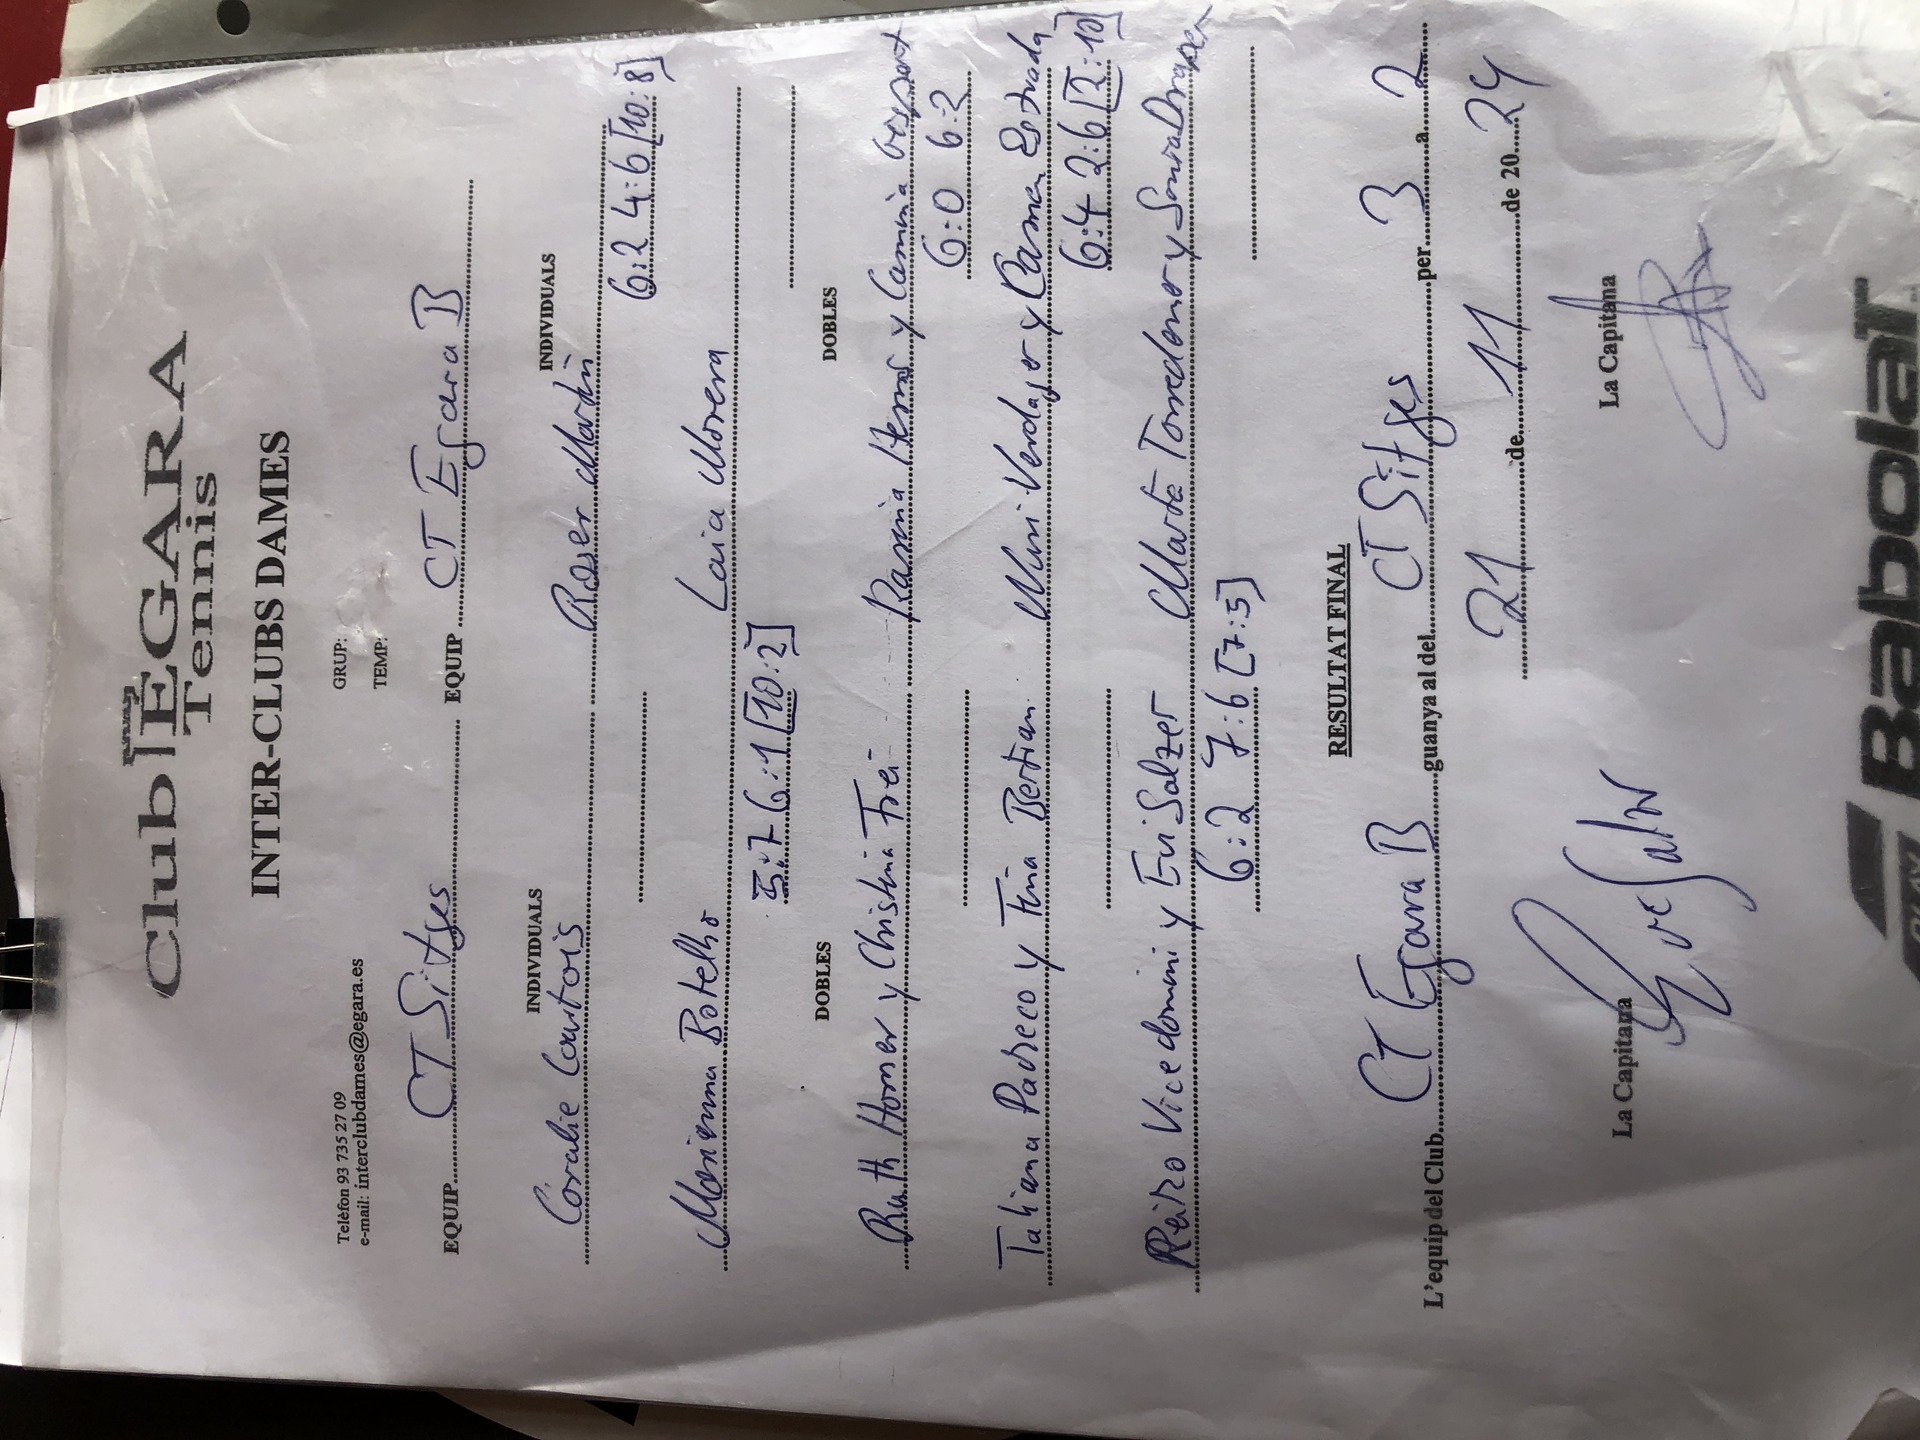 Club EGARA
Tennis
INTER-CLUBS DAMES
Telèfon 93 735 27 09
e-mail: interclubdames@egara.es
GRUP:
TEMP:
EQUIP CT Sitges EQUIP CT Egara B
INDIVIDUALS INDIVIDUALS
Coralie Courtois Roser Martín
6:2 4:6 [10:8]
Marianna Botelho Laia Morera
5:7 6:1 [10:2]
DOBLES DOBLES
Ruth Homer y Christina Frei y Carmina
6:0 6:2
Tatiana Pacheco y Fina Bertran Muni Verdager y Carmen Estrada
6:4 2:6 [2:10]
Vicedomini y Evi Salzer Marta Torredemer y
6:2 7:6 [7:5]
RESULTAT FINAL
L'equip del Club CT Egara B guanya al del CT Sitges per 3 a 2
21 de 11 de 2024
La Capitana La Capitana
Babolat
PLAY